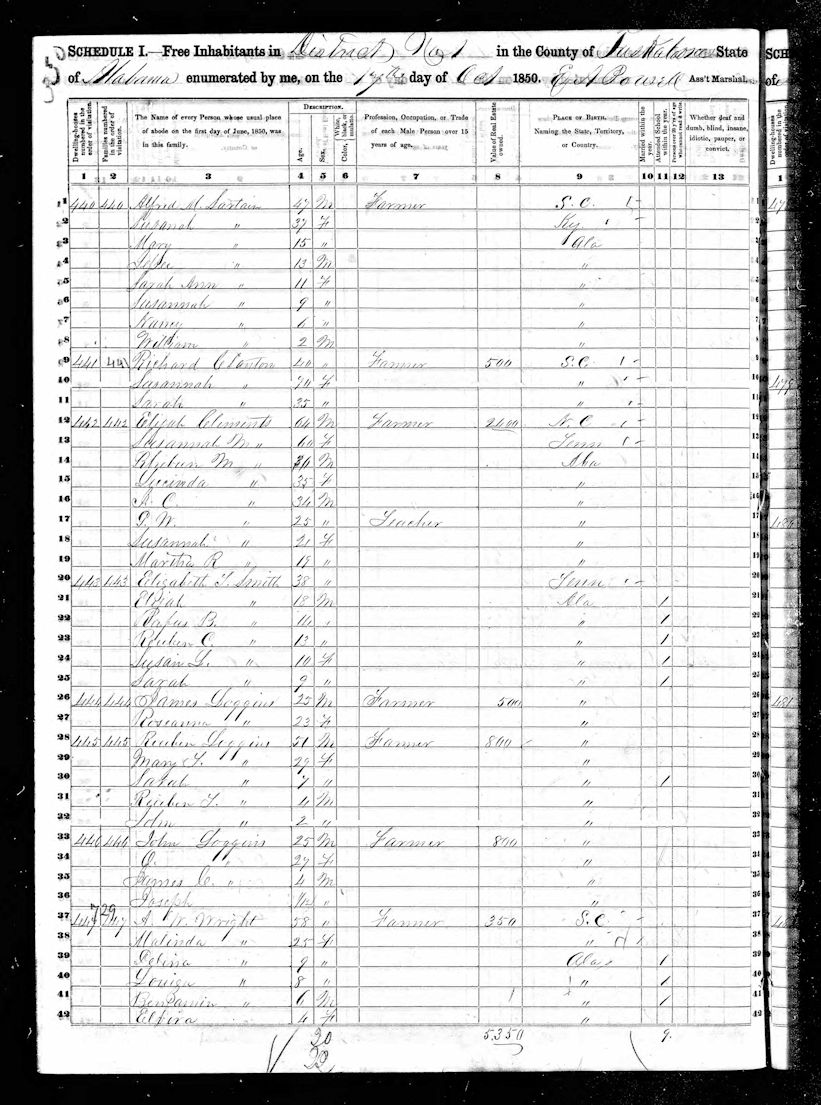 SCHEDULE I.—Free Inhabitants in District No 1 in the County of Tuskaloosa State
of Alabama enumerated by me, on the 17th day of Oct 1850. Ass't Marshal.
Dwelling-houses numbered in the order of visitation.
Families numbered in the order of visitation.
The Name of every Person whose usual place of abode on the first day of June, 1850, was in this family.
DESCRIPTION.
Age.
Sex.
Color, White, black, or mulatto.
Profession, Occupation, or Trade of each Male Person over 15 years of age.
Value of Real Estate owned.
PLACE OF BIRTH. Naming the State, Territory, or Country.
Married within the year.
Attended School within the year.
Persons over 20 y'rs of age who cannot read & write.
Whether deaf and dumb, blind, insane, idiotic, pauper, or convict.
1 2 3 4 5 6 7 8 9 10 11 12 13
1 440 440 Alfred M. Sartain 47 M Farmer S. C. 1
2 Susanah " 37 F Ky 2
3 Mary " 15 " Ala 3
4 " 13 M " 4
5 Sarah Ann " 11 F " 5
6 Susannah " 9 " " 6
7 Nancy " 6 " " 7
8 William " 2 M " 8
9 441 441 Richard Clanton 40 " Farmer 500 S. C. 9
10 Susannah " 70 F " 10
11 Sarah " 35 " " 11
12 442 442 Elijah Clements 64 M Farmer 2400 N. C. 12
13 Susannah M " 60 F Tenn 13
14 Rheuben M " M Ala 14
15 Lucinda " 35 F " 15
16 A. C. " 34 M " 16
17 G. W. " 25 " Teacher " 17
18 Susannah " 21 F " 18
19 Martha R " 19 " " 19
20 443 443 Elizabeth T. Smith 38 " Tenn 20
21 Elijah " 18 M Ala 1 21
22 Rufus B. " 14 " " 1 22
23 Reuben C. " 13 " " 1 23
24 Susan L. " 10 F " 1 24
25 Sarah " 9 " " 1 25
26 444 444 James Loggins 25 M Farmer 500 " 26
27 Roseanna " 23 F " 27
28 445 445 Reuben Loggins 31 M Farmer 800 " 28
29 Mary T. " 29 F " 29
30 Sarah " 7 " " 1 30
31 Reuben T. " 4 M " 31
32 John " 2 " " 32
33 446 446 John Loggins 25 M Farmer 800 " 33
34 " 27 F " 34
35 James C. " 4 M " 35
36 Joseph " " " 36
729
37 447 447 A. W. Wright 58 " Farmer 350 S. C. 37
38 Malinda " 25 F " 38
39 Delina " 9 " Ala 1 39
40 Louiza " 8 " " 1 40
41 Benjamin " 6 M " 1 41
42 Elvira 4 F " 42
20
22
5350
9.